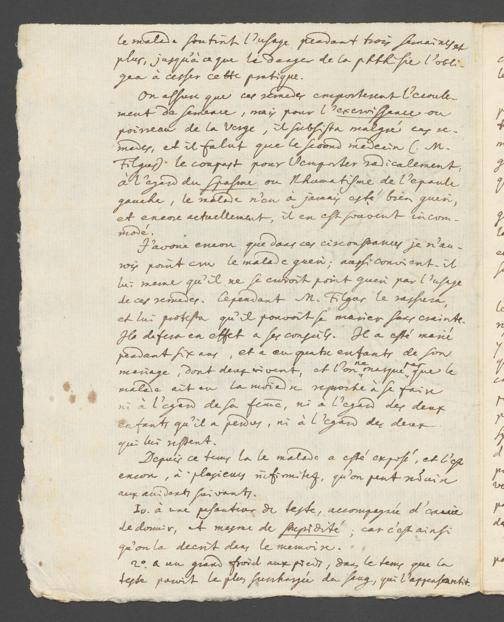 le malade soutint l'usage pendant trois semaines et
plus, jusqu'à ce que le danger de la phthisie l'obli-
gea à cesser cette pratique.
On assure que ces remedes emporterent l'écoule-
ment de semence, mais pour l'excroissance ou
poireau de la verge, il subsista malgré ces re-
medes, et il falut que le second medecin (M.
Filgus) le coupast pour l'emporter radicalement.
à l'egard du spasme ou Rhumatisme de l'epaule
gauche, le malade n'en a jamais esté bien gueri,
et encore actuellement, il en est souvent incom-
modé.
J'avoue encore que dans ces circonstances je n'au-
rois point cru le malade gueri; aussi convient-il
lui meme qu'il ne se croioit point gueri par l'usage
de ces remedes. Cependant M. Filgus le rassura,
et lui protesta qu'il pouvoit se marier sans crainte.
Il defera en effet a ses conseils. Il a esté marié
pendant six ans, et a eu quatre enfants de son
mariage, dont deux vivent, et l'on ne marque pas que le
malade ait eu la moindre reproche à se faire
ni à l'egard de sa feme, ni à l'egard des deux
enfants qu'il a perdus, ni à l'egard des deux
qui lui restent.
Depuis ce tems la le malade a esté exposé, et l'est
encore, à plusieurs infirmitez, qu'on peut reduire
aux accidents suivants.
1o. à une pesanteur de teste, accompagnée d'envie
de dormir, et mesme de stupidité; car c'est ainsi
qu'on la decrit dans le memoire.
2o. à un grand froid aux pieds, dans le tems que la
teste paroit le plus surchargée du sang, qui l'appesantit.